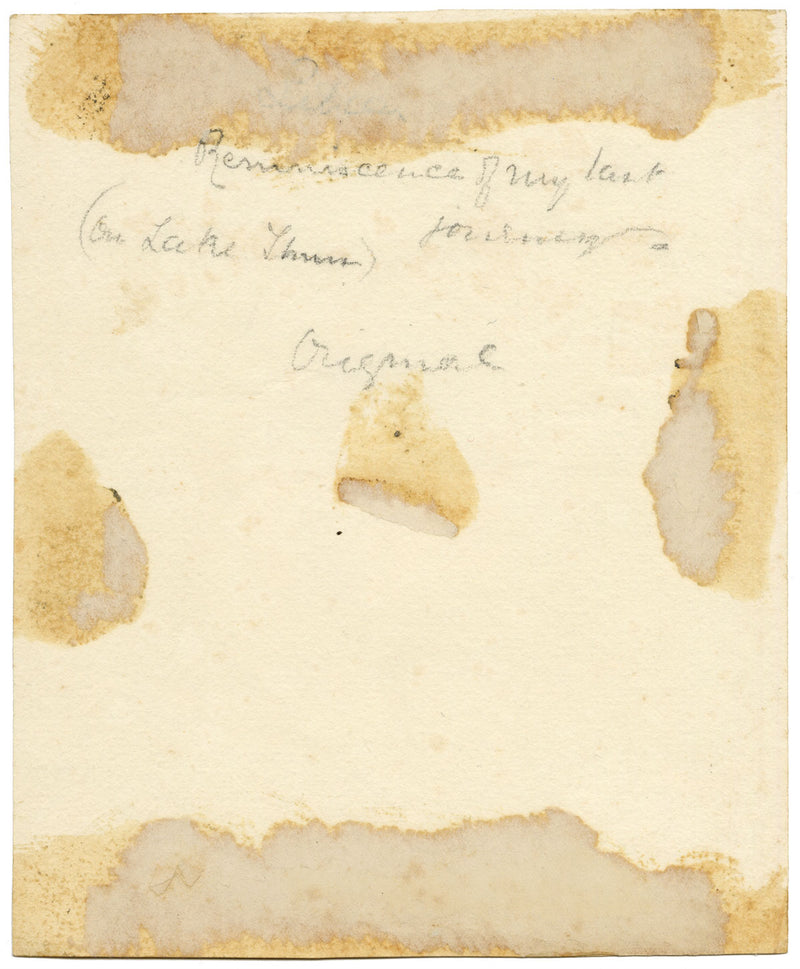 Reminiscence of my last
journey
(On Lake Thun)
Original